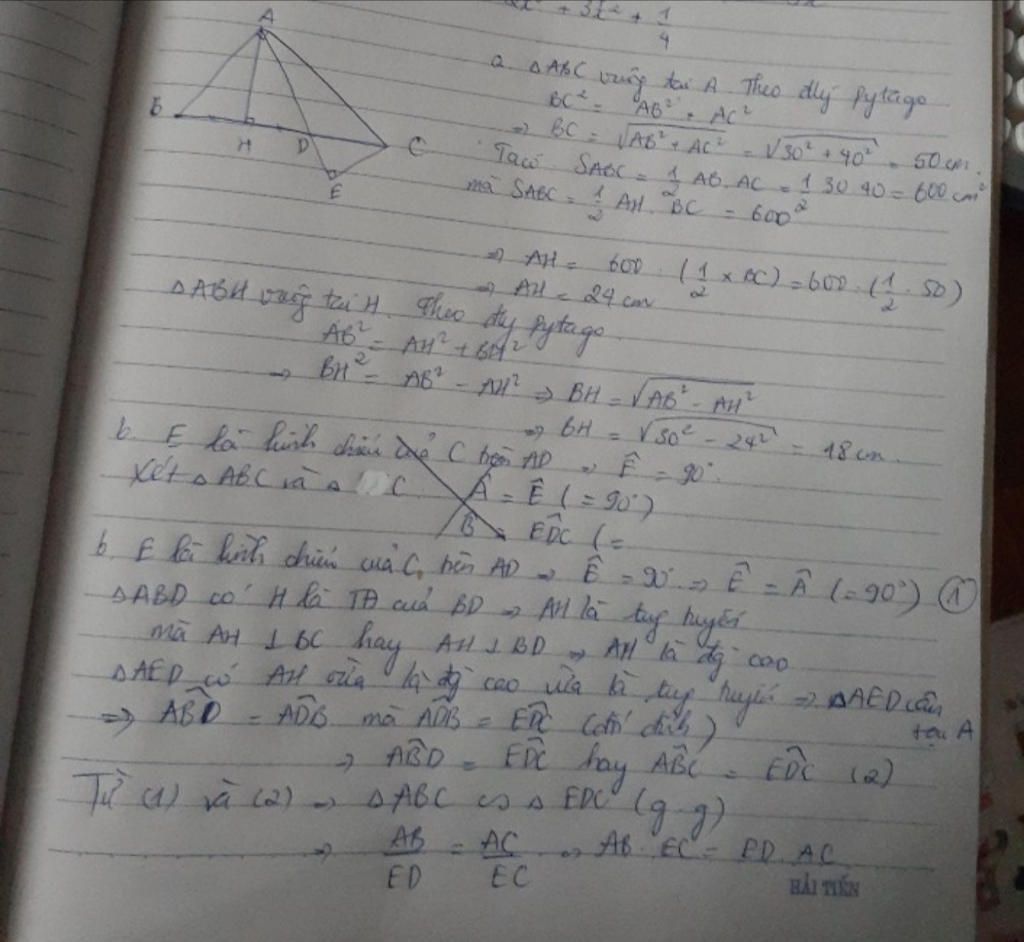 + 3x² + 1/4
A
B
H
D
C
E
a. △ABC vuông tại A. Theo đlý Pytago
BC² = AB² + AC²
⇒ BC = √AB² + AC² = √30² + 40² = 50 cm.
Ta có SABC = 1/2 AB. AC = 1/2 30. 40 = 600 cm²
mà SABC = 1/2 AH. BC = 600²
⇒ AH = 600 : (1/2 × BC) = 600 : (1/2 . 50)
⇒ AH = 24 cm
△ABH vuông tại H. Theo đlý Pytago.
AB² = AH² + BH²
⇒ BH² = AB² - AH² ⇒ BH = √AB² - AH²
⇒ BH = √30² - 24² = 18 cm.
b. E là hình chiếu của C trên AD ⇒ Ê = 90°.
Xét △ABC và △ C Â = Ê (= 90°)
B̂ = EDC (=
b. E là hình chiếu của C trên AD ⇒ Ê = 90° ⇒ Ê = Â (= 90°) ①
△ABD có H là TĐ của BD ⇒ AH là tug tuyến
mà AH ⊥ BC hay AH ⊥ BD ⇒ AH là đg cao
△AED có AH vừa là đg cao vừa là tug tuyến ⇒ △AED cân
tại A
⇒ ABD = ADB mà ADB = EDC (đối đỉnh)
⇒ ABD = EDC hay ABC = EDC (2)
Từ (1) và (2) ⇒ △ABC ∽ △EDC (g.g)
⇒ AB/ED = AC/EC ⇒ AB. EC = ED. AC
HẢI TIẾN